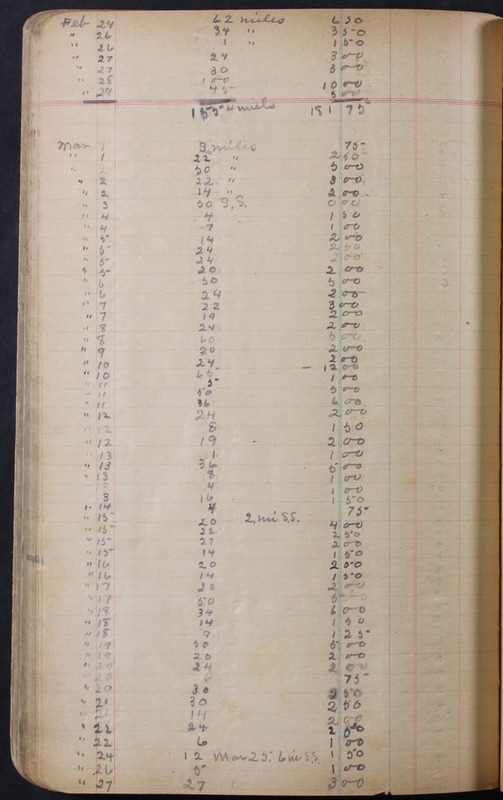 Feb 24 62 miles 6 50
" 26 34 " 3 50
" 26 1 " 1 50
" 27 24 3 00
" 27 30 3 00
" 28 100 10 00
" 29 45 5 00
1554 miles 181 75
Mar 1 9 miles 75
" 1 22 " 2 50
" 2 50 " 5 00
" 2 22 " 3 00
" 2 14 " 2 00
" 3 50 S.S. 0 00
" 4 4 1 50
" 4 7 1 00
" 5 14 2 00
" 5 24 2 00
" 5 24 2 00
" 5 20 2 00
" 6 50 5 00
" 6 24 2 00
" 7 22 3 00
" 7 19 2 00
" 8 24 2 00
" 8 60 5 00
" 9 20 2 00
" 10 24 2 00
" 10 65 12 00
" 11 5 1 00
" 11 50 5 00
" 11 36 6 00
" 12 24 2 00
" 12 8 1 50
" 12 19 2 00
" 13 1 1 00
" 13 36 5 00
" 13 8 1 00
4 1 00
3 16 1 50
" 14 4 75
" 15 20 2, mi S.S. 4 00
" 15 22 2 50
" 15 27 2 00
" 15 14 1 50
" 16 20 2 00
" 16 14 1 50
" 17 20 2 00
" 17 50 5 00
" 18 34 6 00
" 18 14 1 50
" 18 9 1 25
" 19 50 5 00
" 19 20 2 00
" 20 24 2 00
" 20 6 75
" 20 30 3 50
" 21 30 2 50
" 21 14 2 00
" 22 24 2 00
" 22 6 1 00
" 24 12 Mar 25 6 mi S.S. 1 50
" 26 5 1 00
" 27 27 3 00